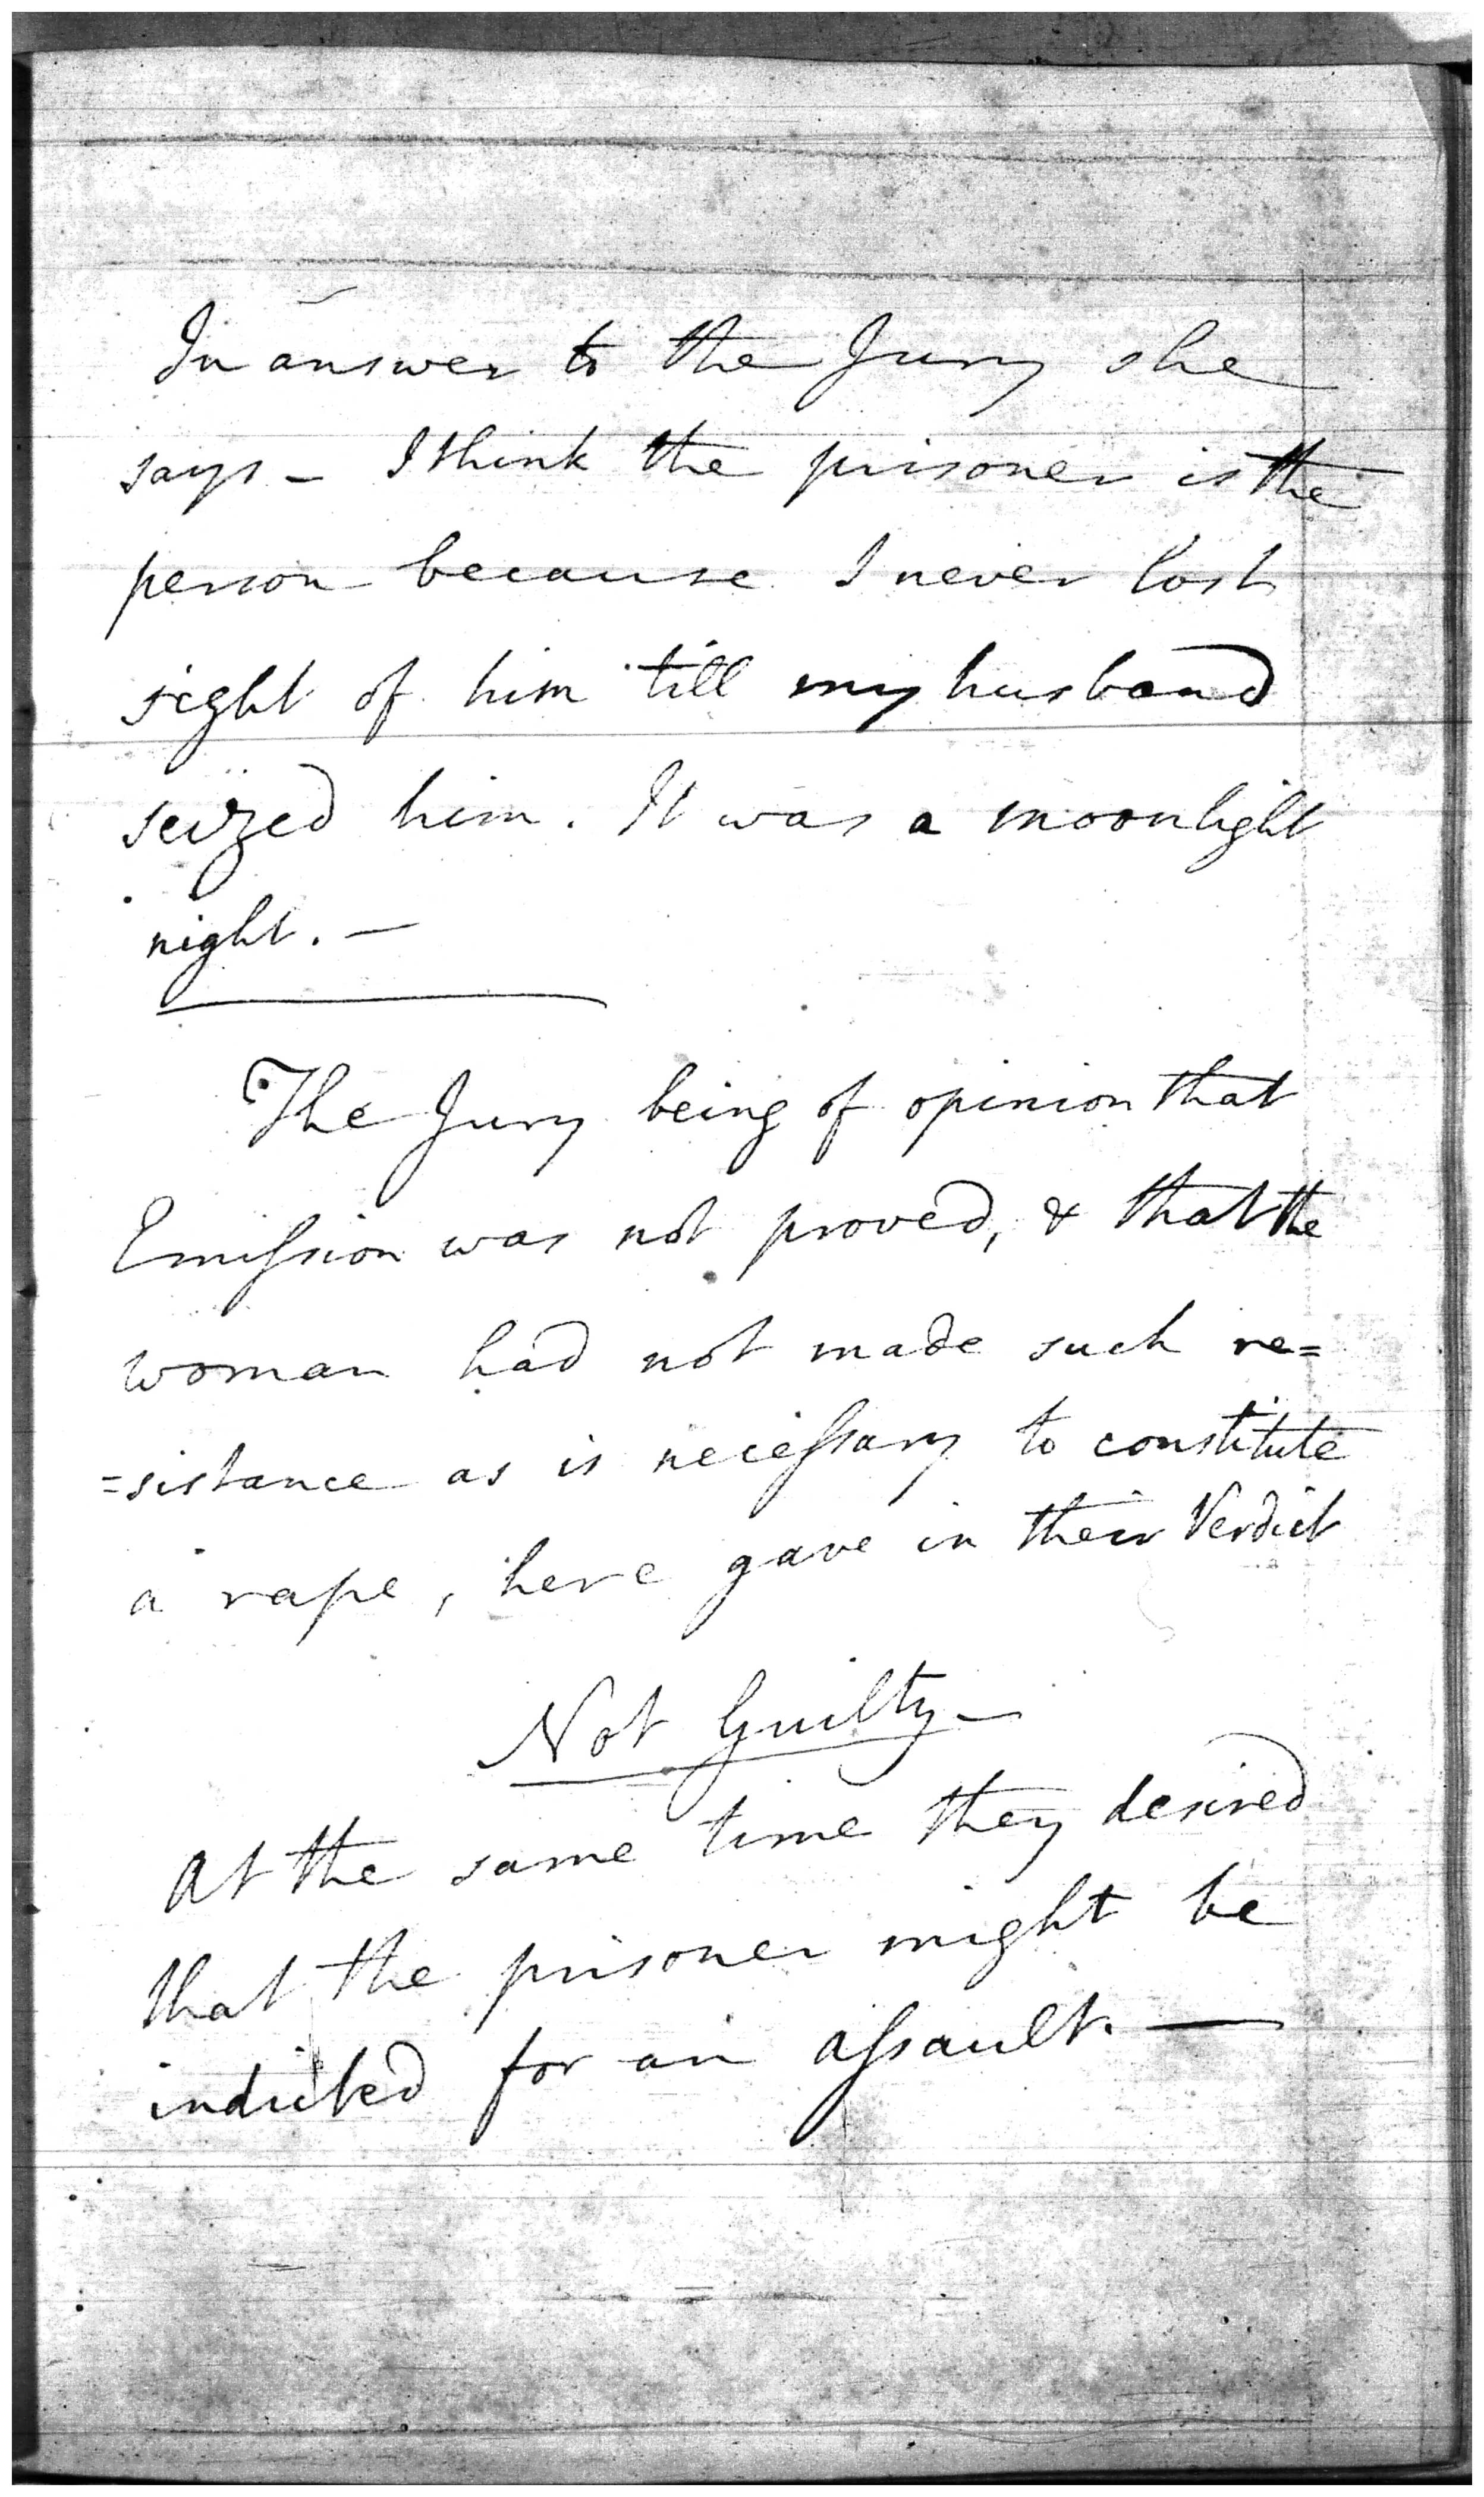 In answer to the Jury she
says – I think the prisoner is the
person because I never lost
sight of him till my husband
seized him. It was a moonlight
night. –
The Jury being of opinion that
Emiſsion was not proved, & that the
woman had not made such re=
=sistance as is neceſsary to constitute
a rape, here gave in their Verdict
Not Guilty –
At the same time they desired
that the prisoner might be
indicted for an aſsault. —